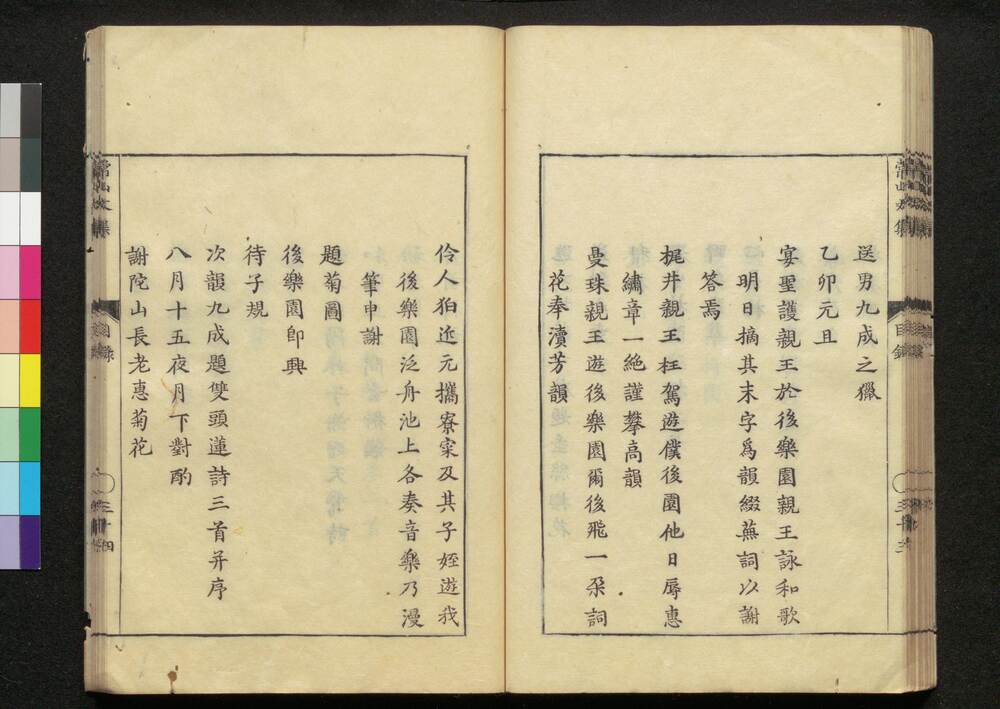 送男九成之獵
乙卯元旦
宴聖護親王於後樂園親王詠和歌
明日摘其末字爲韻綴蕪詞以謝
答焉
梶井親王枉駕遊僕後園他日辱惠
繡章一絶謹攀高韻
曼珠親王遊後樂園爾後飛一朶詞
花奉瀆芳韻
伶人狛近元攜寮寀及其子姪遊我
後樂園泛舟池上各奏音樂乃漫
筆申謝
題菊圖
後樂園卽興
待子規
次韻九成題雙頭蓮詩三首并序
八月十五夜月下對酌
謝陀山長老惠菊花
常山文集
目錄